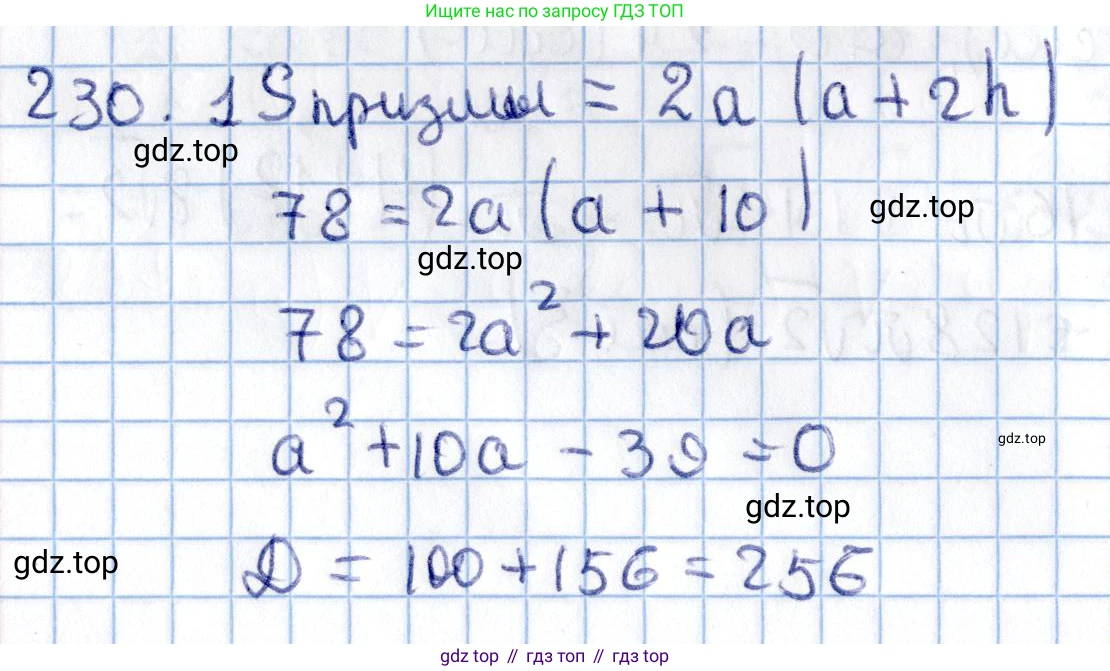 Ищите нас по запросу ГДЗ ТОП
230. 1 Sпризмы = 2a (a + 2h)
gdz.top
78 = 2a (a + 10)
gdz.top
gdz.top
78 = 2a² + 20a
a² + 10a - 39 = 0
gdz.top
gdz.top
D = 100 + 156 = 256
gdz.top
gdz top // гдз топ // гдз top